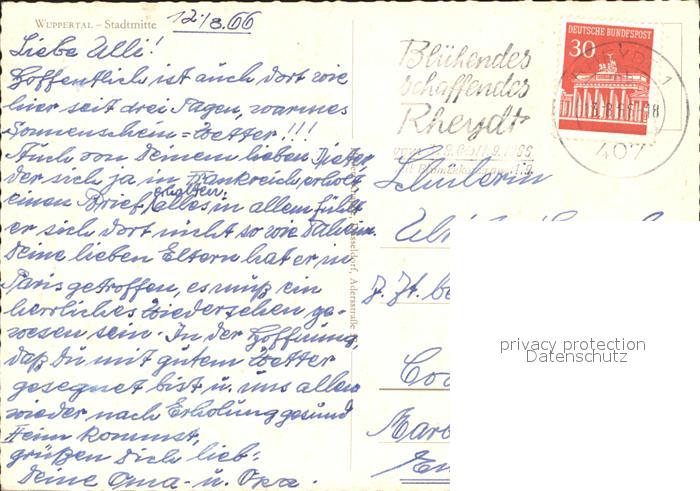 WUPPERTAL – Stadtmitte
12./8.66
Liebe Ulli!
Hoffentlich ist auch dort wie
hier seit drei Tagen, warmes
Sonnenschein=Wetter!!!
Auch von Deinem lieben Dieter
der sich ja in Frankreich erholt
einen Brief erhalten, alles in allem fühlt
er sich dort nicht so wie Daheim.
Deine lieben Eltern hat er in
Paris getroffen, es muß ein
herrliches Wiedersehen ge-
wesen sein. In der Hoffnung,
daß Du mit gutem Wetter
gesegnet bist u. uns allen
wieder nach Erholung gesund
Heim kommst,
grüßen Dich lieb.
Deine Oma- u. Opa.
Blühendes
schaffendes
Rheydt
DEUTSCHE BUNDESPOST
30
407
Düsseldorf, Adersstraße
Schülerin
z. Zt. b
privacy protection
Datenschutz